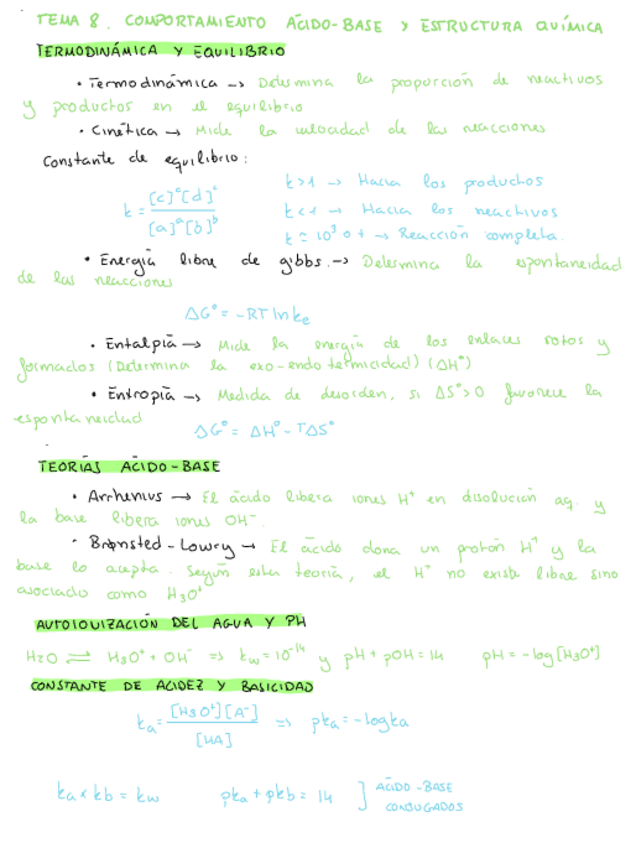 TEMA 8. COMPORTAMIENTO ÁCIDO-BASE Y ESTRUCTURA QUÍMICA
TERMODINÁMICA Y EQUILIBRIO
• Termodinámica → Determina la proporción de reactivos
y productos en el equilibrio
• Cinética → Mide la velocidad de las reacciones
Constante de equilibrio:
k = [c]^c[d]^c / [a]^a[b]^b
k>1 → Hacia los productos
k<1 → Hacia los reactivos
k = 10³ o + → Reacción completa.
• Energía libre de gibbs. → Determina la espontaneidad
de las reacciones
ΔG° = -RT ln ke
• Entalpía → Mide la energía de los enlaces rotos y
formados (Determina la exo-endo termicidad) (ΔH°)
• Entropía → Medida de desorden, si ΔS°>0 favorece la
espontaneidad
ΔG° = ΔH° - TΔS°
TEORÍAS ÁCIDO-BASE
• Arrhenius → El ácido libera iones H⁺ en disolución aq. y
la base libera iones OH⁻.
• Brønsted-Lowry → El ácido dona un protón H⁺ y la
base lo acepta. Según esta teoría, el H⁺ no existe libre sino
asociado como H₃O⁺
AUTOIONIZACIÓN DEL AGUA Y PH
H₂O ⇌ H₃O⁺ + OH⁻ ⇒ kw = 10⁻¹⁴ y pH + pOH = 14 pH = -log[H₃O⁺]
CONSTANTE DE ACIDEZ Y BASICIDAD
ka = [H₃O⁺][A⁻] / [HA] ⇒ pka = -log ka
ka × kb = kw pka + pkb = 14 ] ÁCIDO-BASE
CONJUGADOS